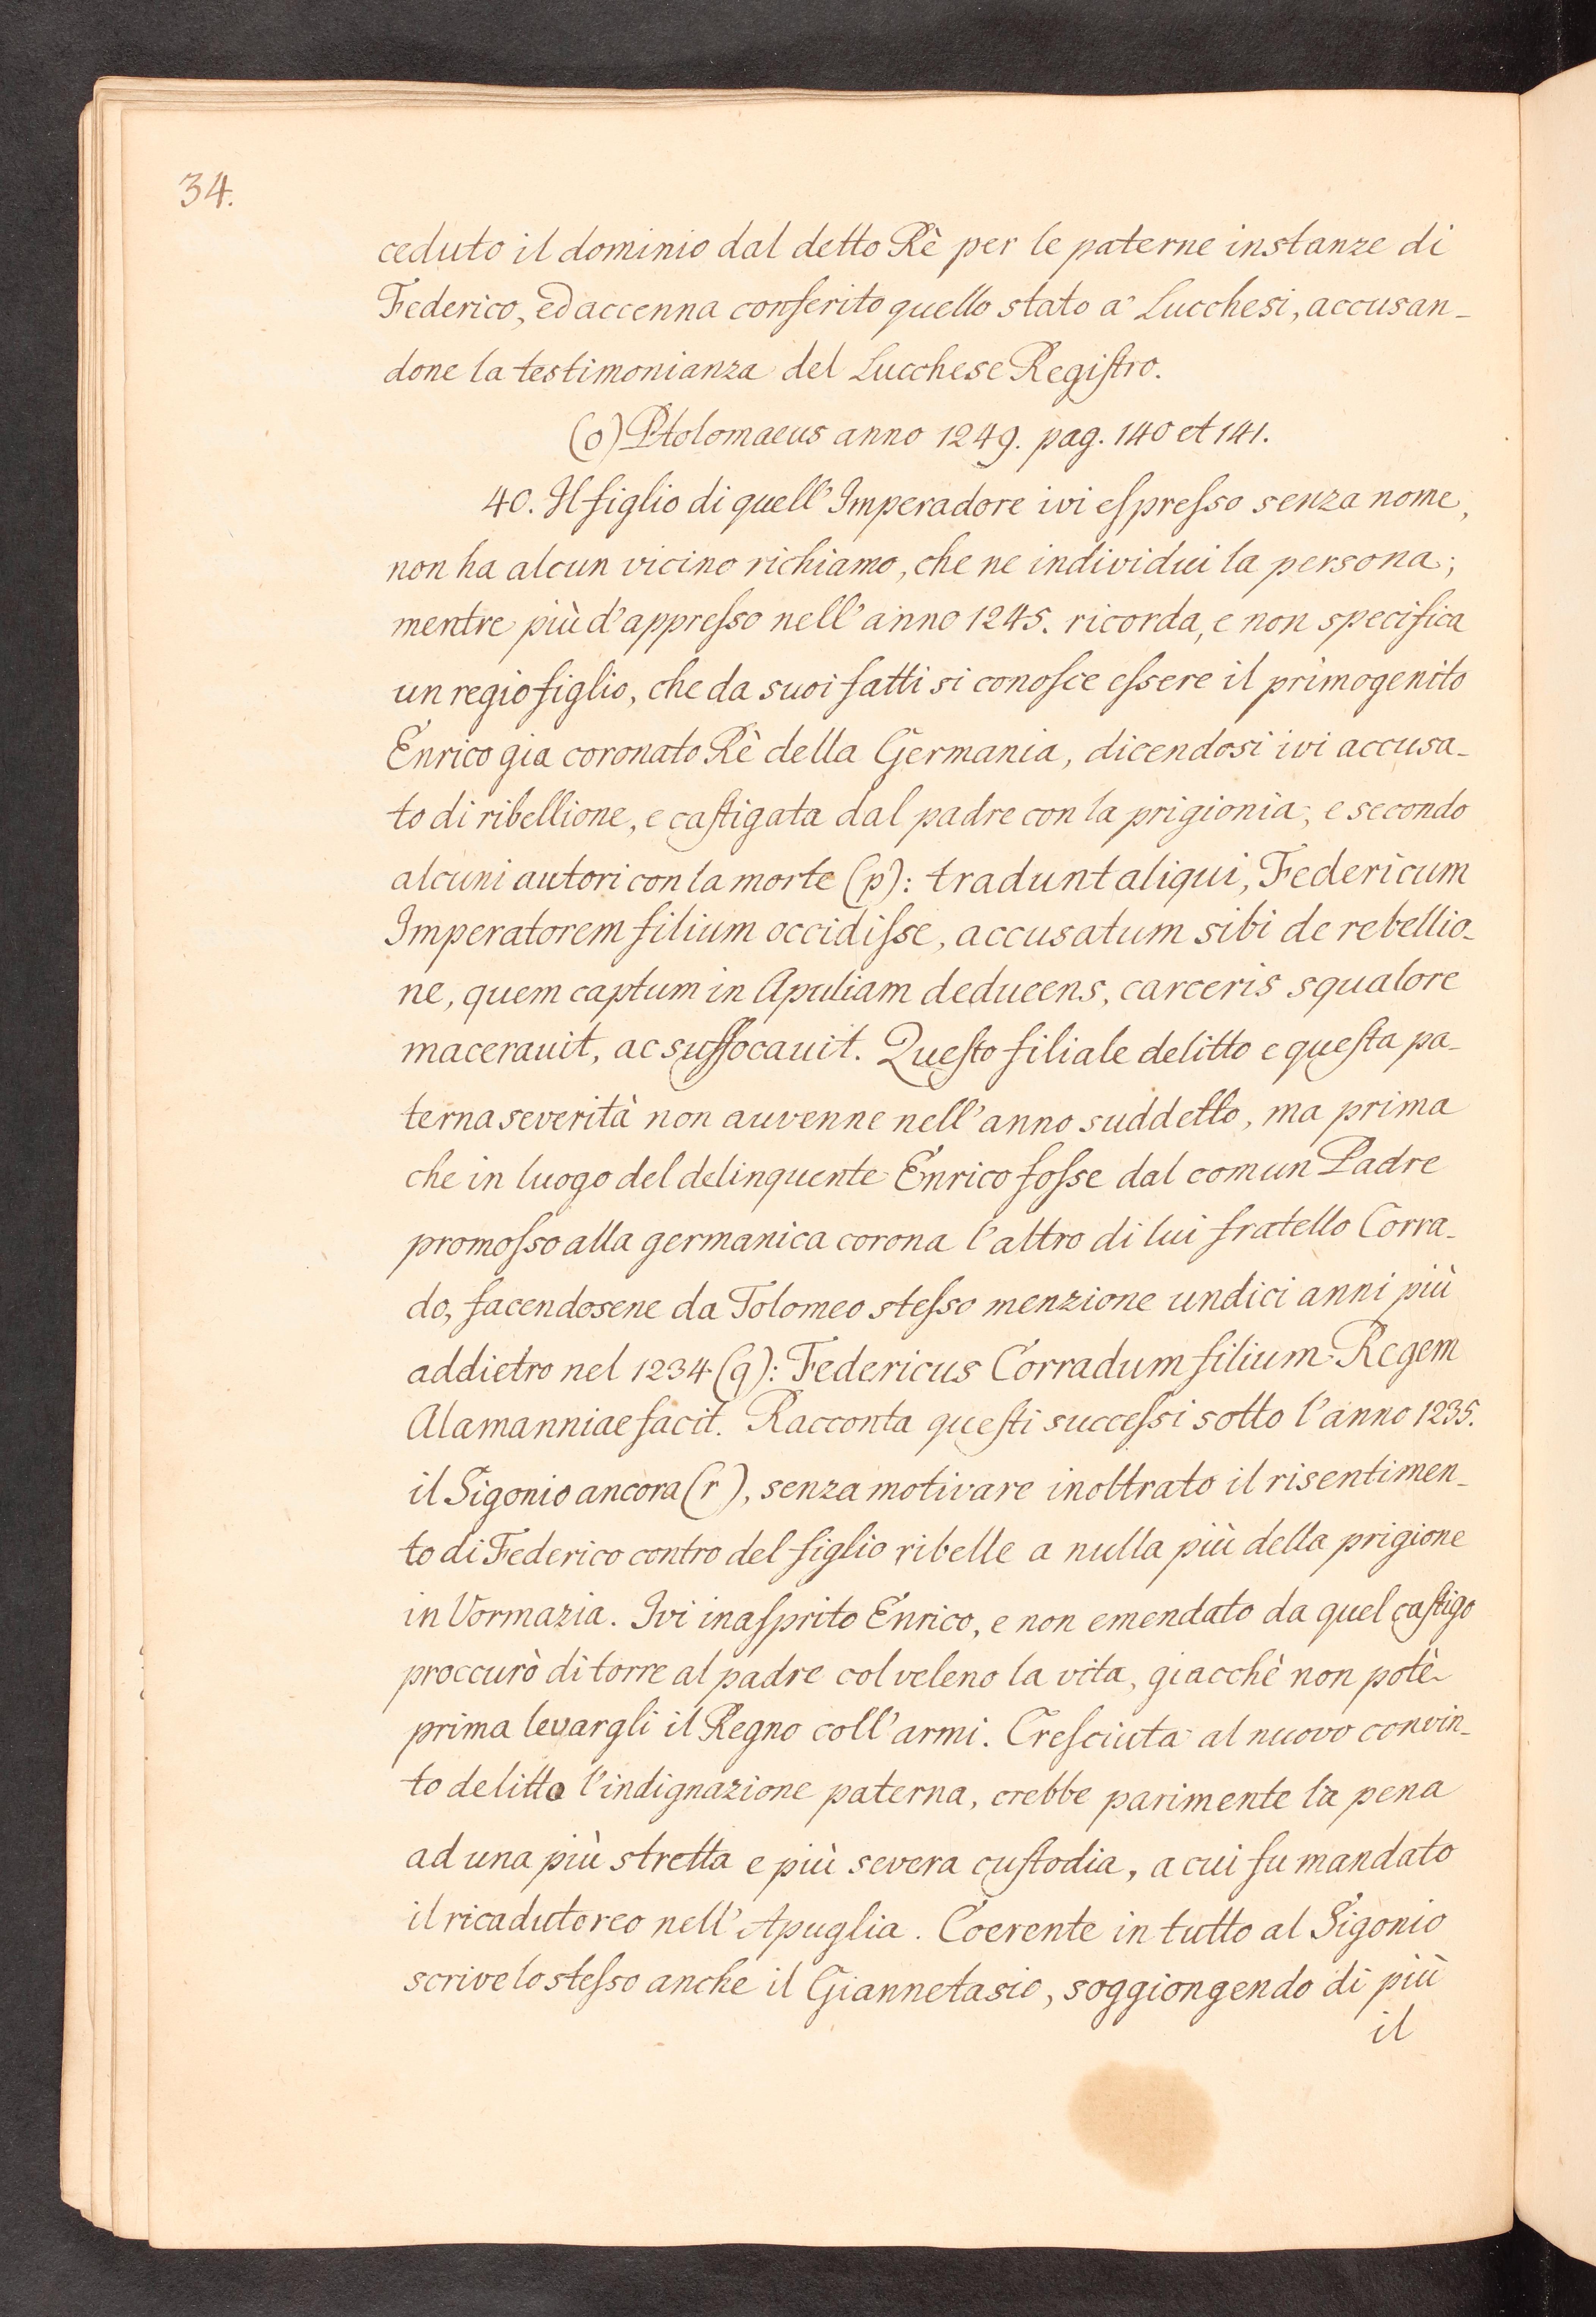 34.
ceduto il dominio dal detto Rè per le paterne instanze di
Federico, ed accenna conferito quello stato a' Lucchesi, accusan-
done la testimonianza del Lucchese Registro.
(o) Ptolomaeus anno 1249. pag. 140 et 141.
40. Il figlio di quell' Imperadore ivi espresso senza nome,
non ha alcun vicino richiamo, che ne individui la persona;
mentre più d'appresso nell' anno 1245. ricorda, e non specifica
un regio figlio, che da suoi fatti si conosce essere il primogenito
Enrico gia coronato Rè della Germania, dicendosi ivi accusa-
to di ribellione, e castigata dal padre con la prigionia, e secondo
alcuni autori con la morte (p): tradunt aliqui, Federicum
Imperatorem filium occidisse, accusatum sibi de rebellio-
ne, quem captum in Apuliam deducens, carceris squalore
macerauit, ac suffocauit. Questo filiale delitto e questa pa-
terna severità non auvenne nell' anno suddetto, ma prima
che in luogo del delinquente Enrico fosse dal comun Padre
promosso alla germanica corona l'altro di lui fratello Corra-
do, facendosene da Tolomeo stesso menzione undici anni più
addietro nel 1234 (q): Federicus Corradum filium Regem
Alamanniae facit. Racconta questi successi sotto l'anno 1235.
il Sigonio ancora (r), senza motivare inoltrato il risentimen-
to di Federico contro del figlio ribelle a nulla più della prigione
in Vormazia. Ivi inasprito Enrico, e non emendato da quel castigo
proccurò di torre al padre col veleno la vita, giacchè non potè
prima levargli il Regno coll' armi. Cresciuta al nuovo convin-
to delitto l'indignazione paterna, crebbe parimente la pena
ad una più stretta e più severa custodia, a cui fu mandato
il ricaduto reo nell' Apuglia. Coerente in tutto al Sigonio
scrive lo stesso anche il Giannetasio, soggiongendo di più
il